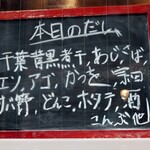 本日のだし
千葉黄黒煮干、あじ、さば、
エソ、アゴ、かつを、宗田
サバ節、どんこ、ホタテ、酒
こんぶ他